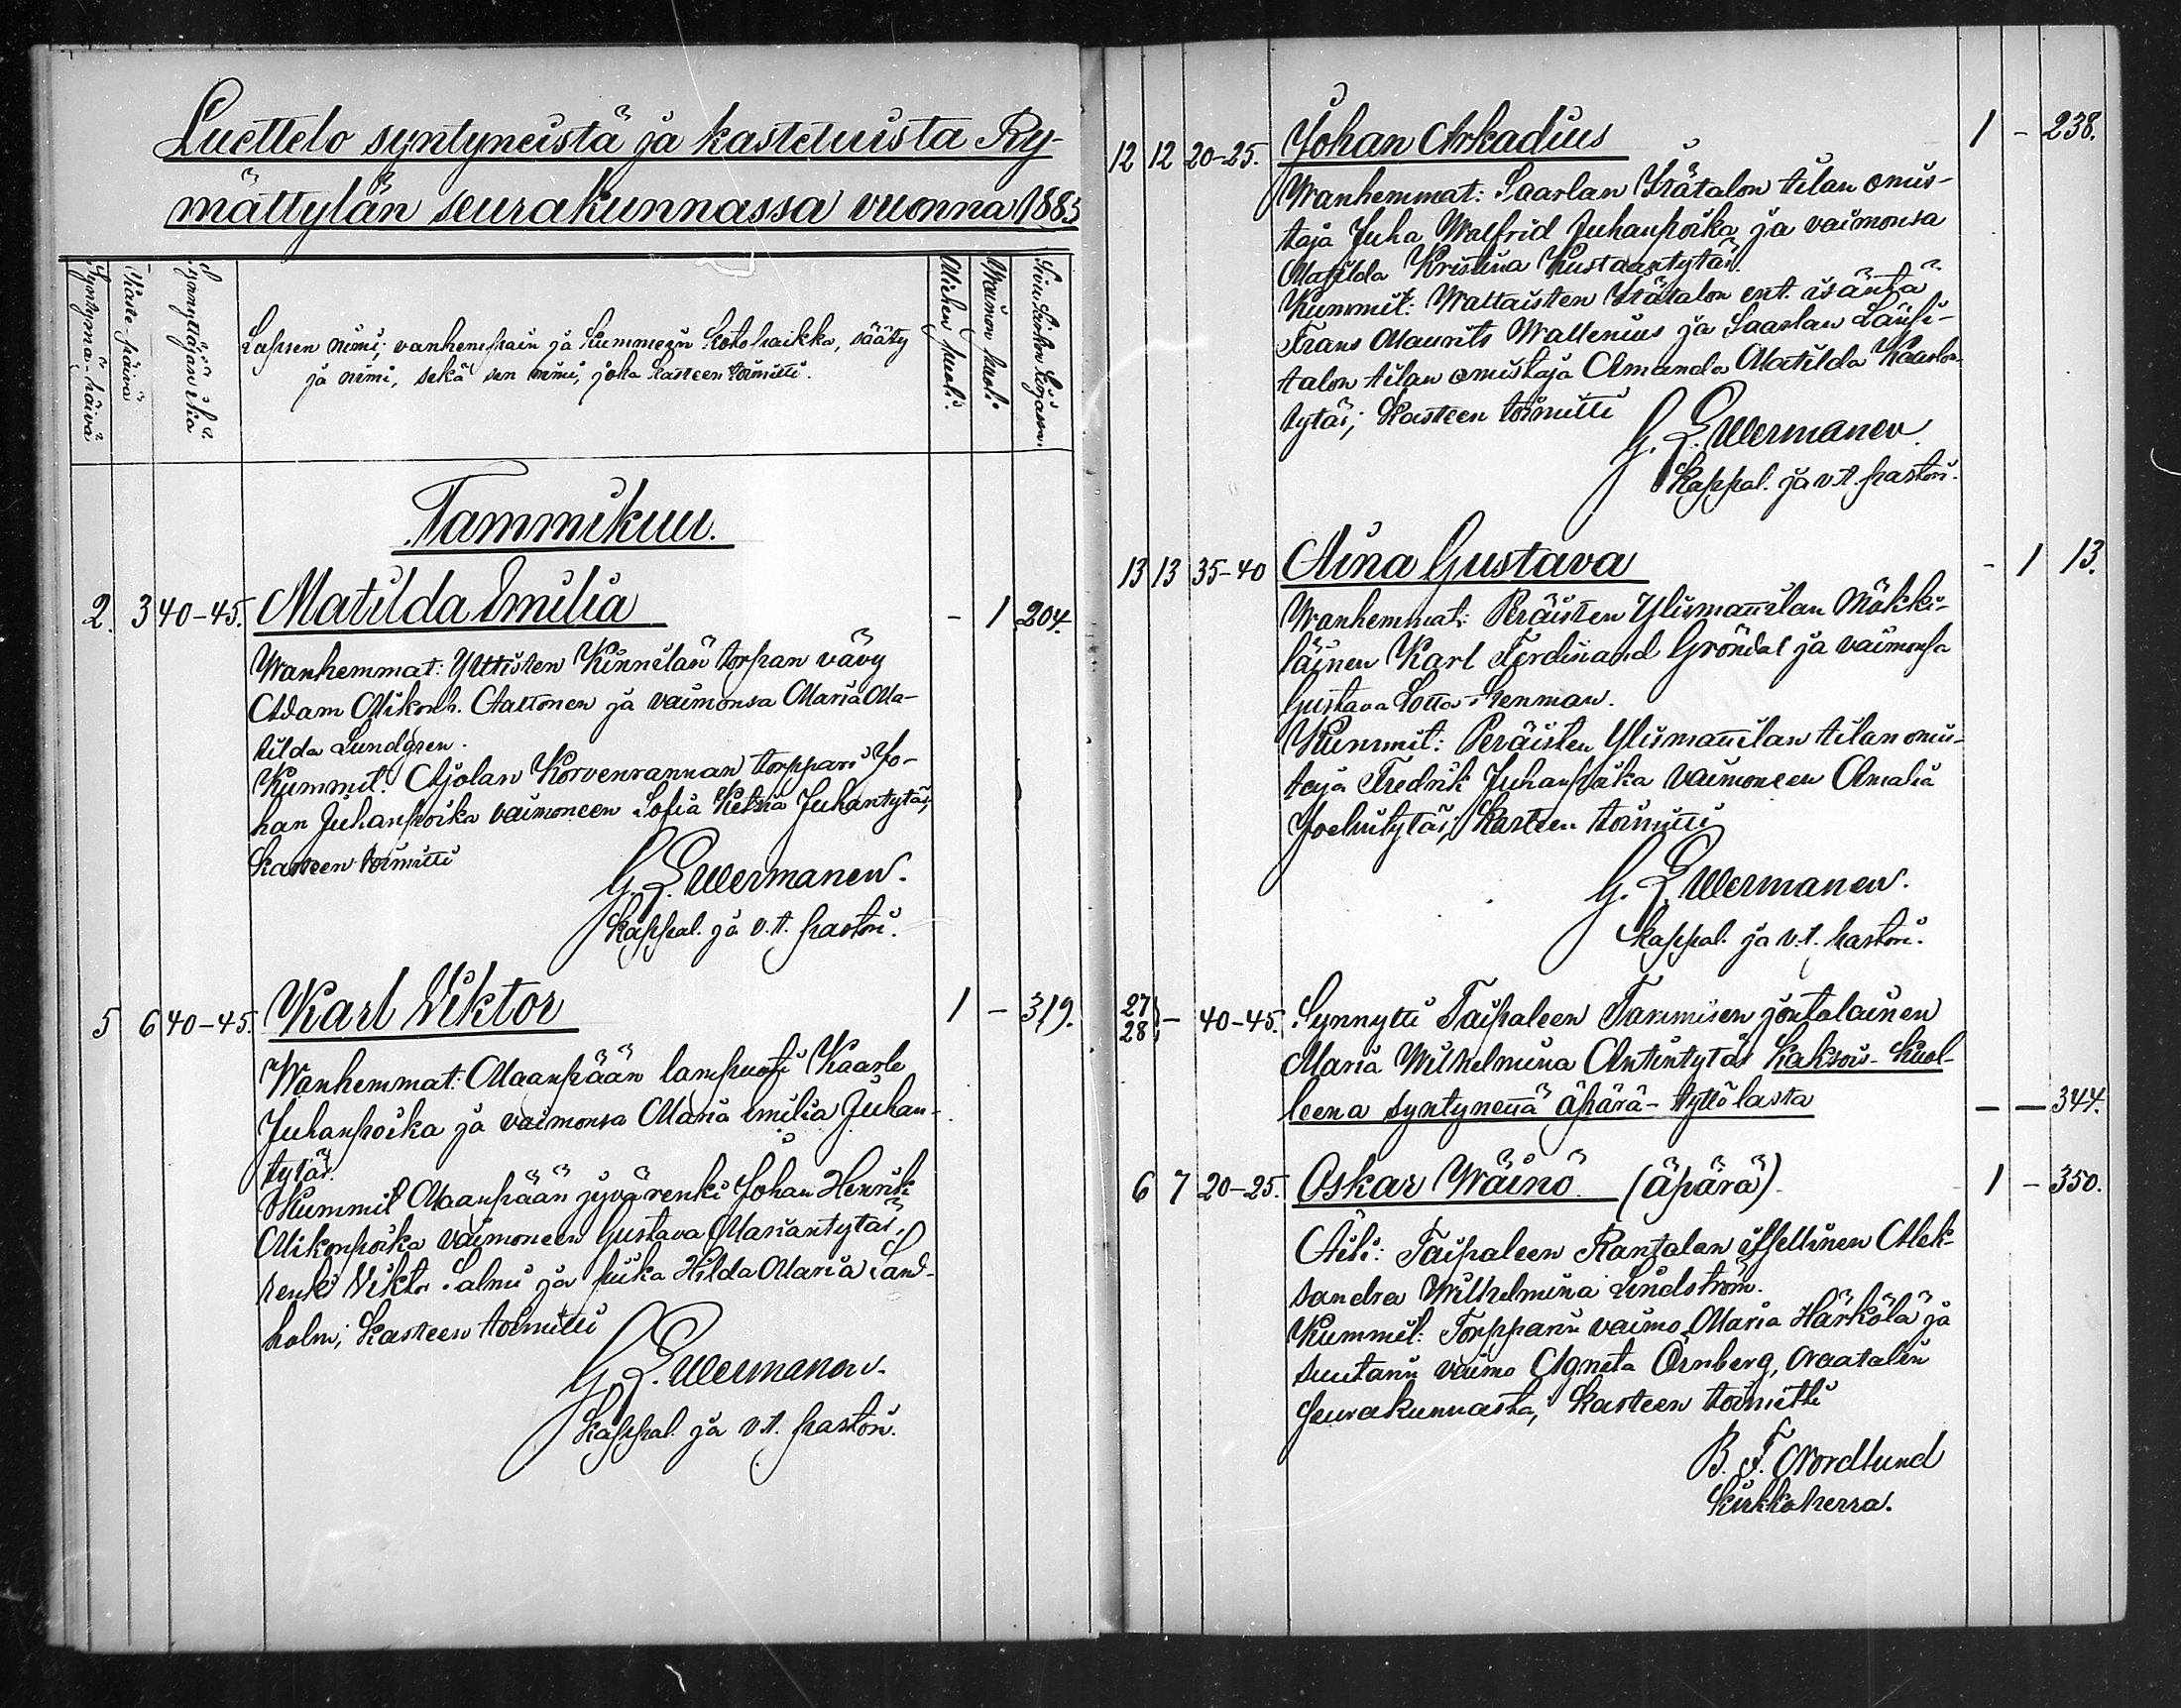 Luettelo syntyneistä ja kastetuista Ry-
mättylän seurakunnassa vuonna 1883
Syntymä-päivä
Kaste-päivä
Synnyttäjän ikä
Lapsen nimi; vanhempain ja kummein kotopaikka, sääty
ja nimi, sekä sen nimi, joka kasteen toimitti.
Miehen puoli.
Waimon puoli.
Sivu kirkonkirjassa.
Tammikuu.
2. 3 40-45. Matilda Emilia - 1 204.
Wanhemmat: Yttisten Kinnilän torpan vävy
Adam Mikonp. Aaltonen ja vaimonsa Maria Ma-
tilda Lundgren.
Kummit: Ajolan Korvenrannan torppari Jo-
han Juhanpoika vaimoneen Sofia Juhantytär;
kasteen toimitti
G. E. Wermanen.
kappal. ja v.t. pastori.
5 6 40-45. Karl Viktor 1 - 319.
Wanhemmat: Maanpään lampuoti Kaarle
Juhanpoika ja vaimonsa Maria Emilia Juhan-
tytär.
Kummit Maanpään jyvärenki Johan Henrik
Mikonpoika vaimoneen Gustava Mariantytär,
renki Viktor Salmi ja piika Hilda Maria Sand-
holm; kasteen toimitti
G. E. Wermanen.
kappal. ja v.t. pastori.
12 12 20-25. Johan Arkadius 1 - 238.
Wanhemmat: Saarlan Itätalon tilan omis-
taja Juha Walfrid Juhanpoika ja vaimonsa
Matilda Kristina Kustaantytär.
Kummit: Waltaisten Itätalon ent. isäntä
Frans Maurits Wallenius ja Saarlan Länsi-
talon tilan omistaja Amanda Matilda Kaarlon-
tytär; kasteen toimitti
G. E. Wermanen.
kappal. ja v.t. pastori.
13 13 35-40 Aina Gustava - 1 13.
Wanhemmat: Peräisten Ylismannilan mökki-
läinen Karl Ferdinand Gröndal ja vaimonsa
Gustava Lotta Stenman.
Kummit: Peräisten Ylismannilan tilan omis-
taja Fredrik Juhanpoika vaimoneen Amalia
Joelintytär; kasteen toimitti
G. E. Wermanen.
kappal. ja v.t. pastori.
27
28 - 40-45. Synnytti Taipaleen Tammisen joutolainen
Maria Wilhelmina Antintytär kaksois-kuol-
leena syntynenä äpärä-tyttölasta - - 344.
6 7 20-25. Oskar Wäinö (äpärä) 1 - 350.
Äiti: Taipaleen Rantalan itsellinen Alek-
sandra Wilhelmina Lindström.
Kummit: Torpparin vaimo Maria Härkölä ja
suutarin vaimo Agneta Örnberg, Naatalin
seurakunnasta, kasteen toimitti
B. F. Nordlund
kirkkoherra.